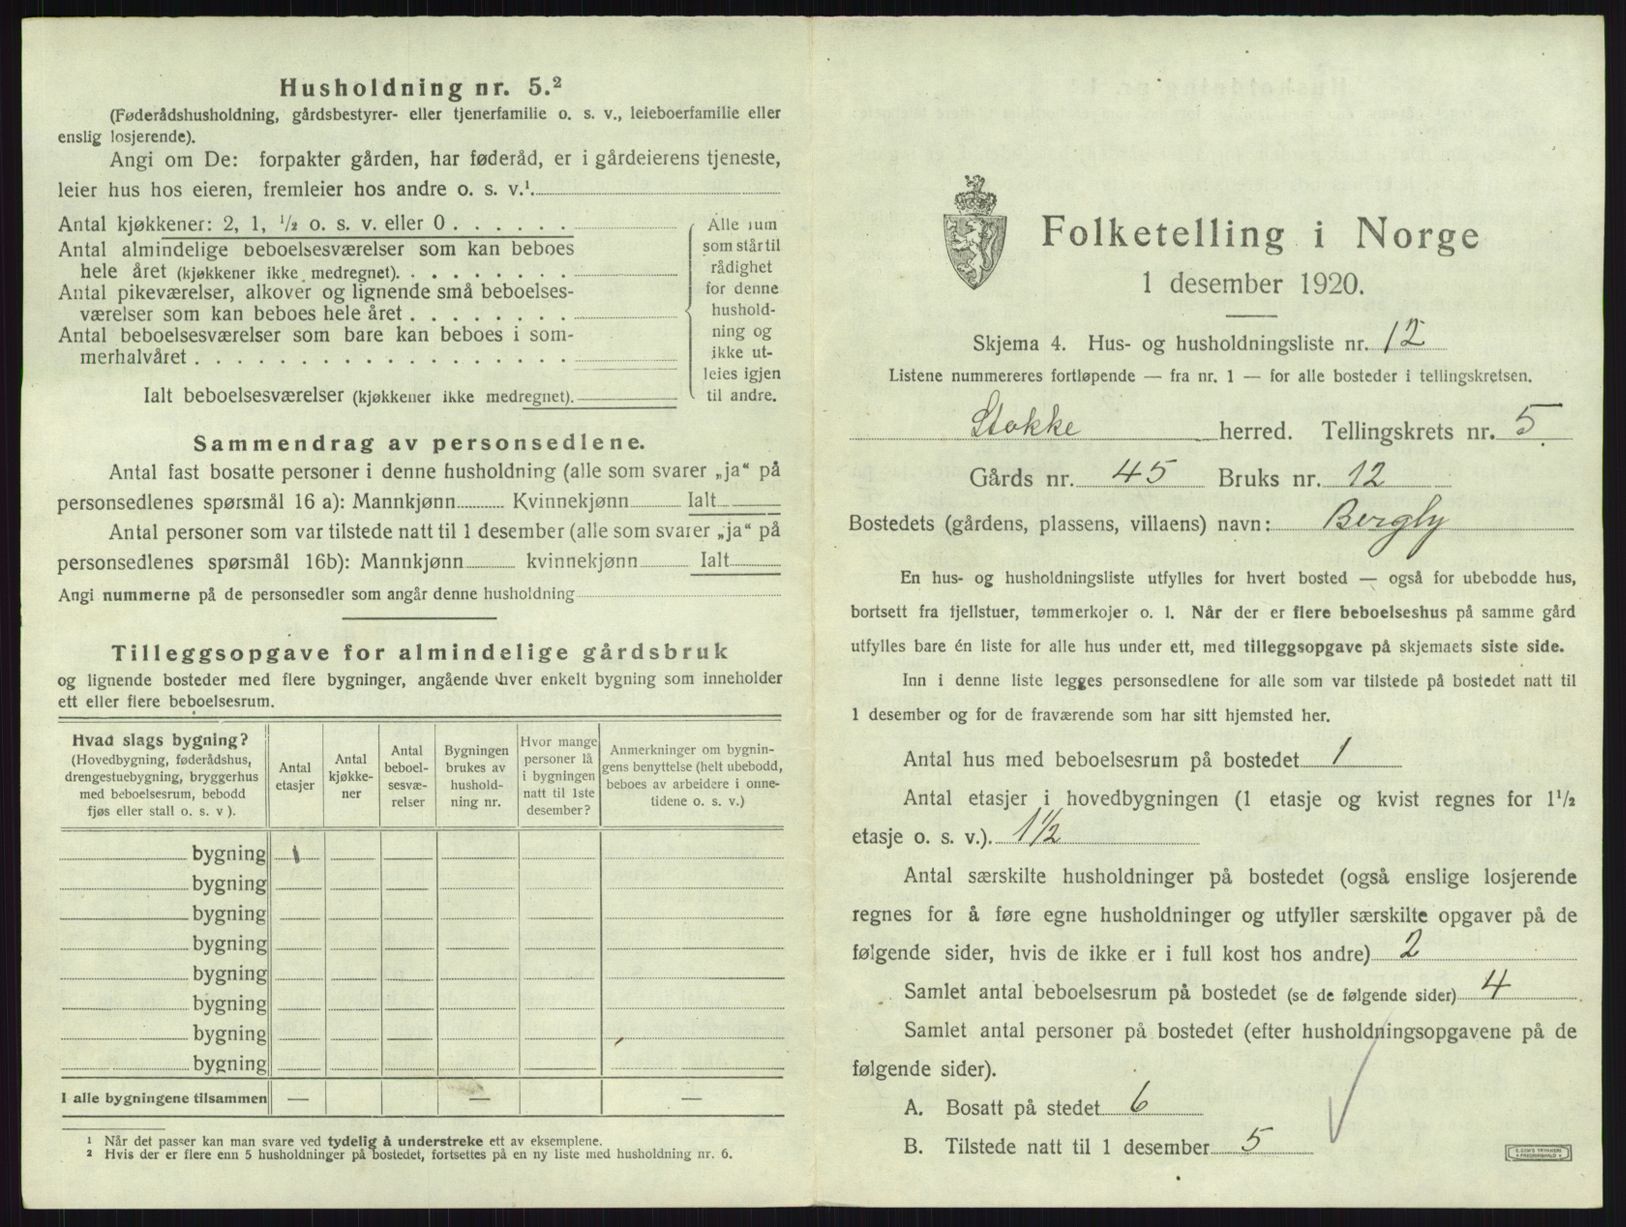 Husholdning nr. 5.²
(Føderådshusholdning, gårdsbestyrer- eller tjenerfamilie o. s. v., leieboerfamilie eller
enslig losjerende).
Angi om De: forpakter gården, har føderåd, er i gårdeierens tjeneste,
leier hus hos eieren, fremleier hos andre o. s. v.¹
Antal kjøkkener: 2, 1, ½ o. s. v. eller 0
Antal almindelige beboelsesværelser som kan beboes
hele året (kjøkkener ikke medregnet).
Antal pikeværelser, alkover og lignende små beboelses-
værelser som kan beboes hele året
Antal beboelsesværelser som bare kan beboes i som-
merhalvåret
Ialt beboelsesværelser (kjøkkener ikke medregnet).
Alle rum
som står til
rådighet
for denne
hushold-
ning og
ikke ut-
leies igjen
til andre.
Sammendrag av personsedlene.
Antal fast bosatte personer i denne husholdning (alle som svarer „ja“ på
personsedlenes spørsmål 16 a): Mannkjønn Kvinnekjønn Ialt
Antal personer som var tilstede natt til 1 desember (alle som svarer „ja“ på
personsedlenes spørsmål 16b): Mannkjønn kvinnekjønn Ialt
Angi nummerne på de personsedler som angår denne husholdning
Tilleggsopgave for almindelige gårdsbruk
og lignende bosteder med flere bygninger, angående hver enkelt bygning som inneholder
ett eller flere beboelsesrum.
Hvad slags bygning?
(Hovedbygning, føderådshus,
drengestuebygning, bryggerhus
med beboelsesrum, bebodd
fjøs eller stall o. s. v ).
Antal
etasjer
Antal
kjøkke-
ner
Antal
beboel-
sesvæ-
relser
Bygningen
brukes av
hushold-
ning nr.
Hvor mange
personer lå
i bygningen
natt til 1ste
desember?
Anmerkninger om bygnin-
gens benyttelse (helt ubebodd,
beboes av arbeidere i onne-
tidene o. s. v.)
bygning 1
bygning
bygning
bygning
bygning
bygning
bygning
bygning
I alle bygningene tilsammen — — —
¹ Når det passer kan man svare ved tydelig å understreke ett av eksemplene.
² Hvis der er flere enn 5 husholdninger på bostedet, fortsettes på en ny liste med husholdning nr. 6.
Folketelling i Norge
1 desember 1920.
Skjema 4. Hus- og husholdningsliste nr. 12
Listene nummereres fortløpende — fra nr. 1 — for alle bosteder i tellingskretsen.
Stokke herred. Tellingskrets nr. 5.
Gårds nr. 45 Bruks nr. 12
Bostedets (gårdens, plassens, villaens) navn: Bergly
En hus- og husholdningsliste utfylles for hvert bosted — også for ubebodde hus,
bortsett fra fjellstuer, tømmerkojer o. l. Når der er flere beboelseshus på samme gård
utfylles bare én liste for alle hus under ett, med tilleggsopgave på skjemaets siste side.
Inn i denne liste legges personsedlene for alle som var tilstede på bostedet natt til
1 desember og for de fraværende som har sitt hjemsted her.
Antal hus med beboelsesrum på bostedet 1
Antal etasjer i hovedbygningen (1 etasje og kvist regnes for 1½
etasje o. s. v.). 1½
Antal særskilte husholdninger på bostedet (også enslige losjerende
regnes for å føre egne husholdninger og utfyller særskilte opgaver på de
følgende sider, hvis de ikke er i full kost hos andre) 2
Samlet antal beboelsesrum på bostedet (se de følgende sider) 4
Samlet antal personer på bostedet (efter husholdningsopgavene på de
følgende sider).
A. Bosatt på stedet 6
B. Tilstede natt til 1 desember 5